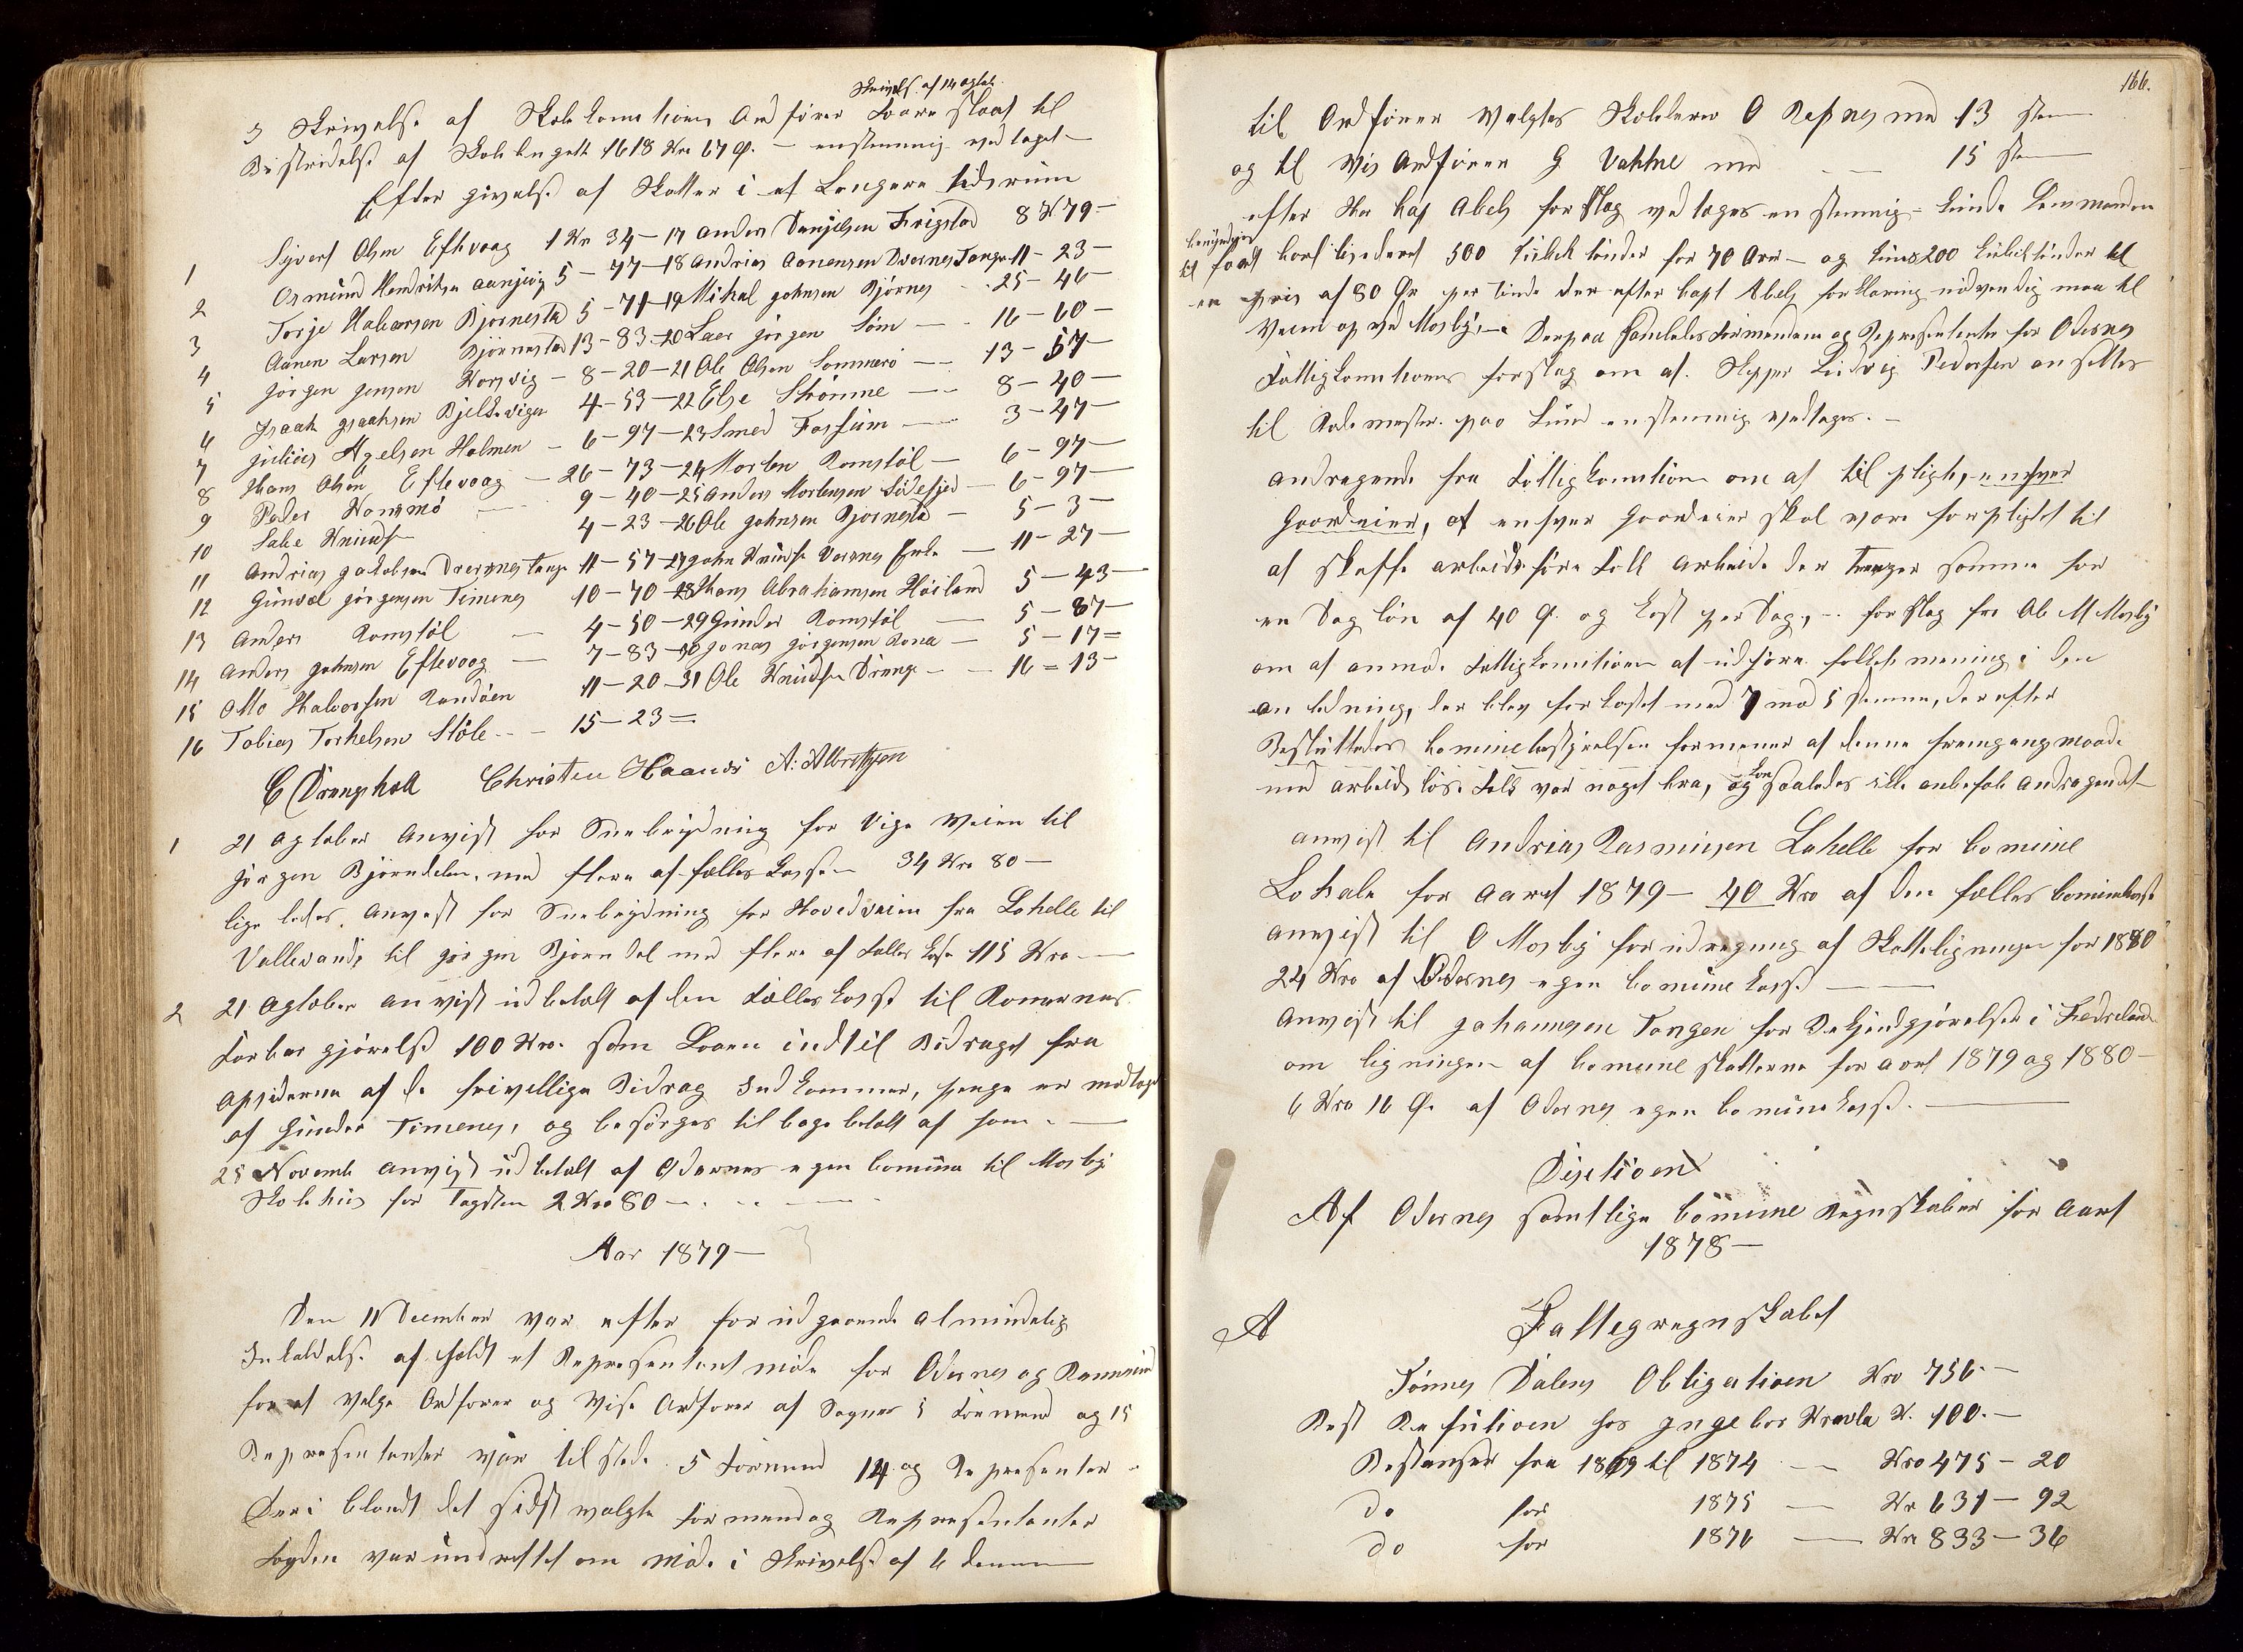 Skrivels. af 14 Ogtob.
5 Skrivelse af Skolekomitionens Ordfører
Bestridelse af Skolebugett 1618 Kro 67 Ø. – enstemmig vedtaget –
Eftergivelse af Skatter i et Længere tidsrum
1 Syvert Olsen Eftevaag 1 Kr 34 – 17 Anders Danjelsen Frigstad 8 K 79 –
2 Osmund Hendriksen Aanjevig 5 – 77 – 18 Andrias Aanensen Dversnes Tange 11 – 23 –
3 Torje Halvorsen Bjørnestad 5 – 71 – 19 Mikal Johnsen Bjørnes 25 – 46
4 Aanen Larsen Bjørnestad 13 – 83 – 20 Lars Jørgen Søm 16 – 60 –
5 Jørgen Jensen Korsvig – 8 – 20 – 21 Ole Olsen Sommerö 13 – 57 –
6 Isaak Isaaksen Bjelkevigen 4 – 53 – 22 Else Strømme 8 – 40 –
7 Julius Agelsen Holmen – 6 – 97 – 23 Smed Fosseim 3 – 27 –
8 Hans Olsen Eftevaag – 26 – 73 – 24 Morten Romstøl – 6 – 97 –
9 Peder Kongsmo 9 – 40 – 25 Anders Mortensen Sødefjed – 6 – 97 –
10 Sale Knuds 4 – 23 – 26 Ole Johnsen Bjørnestad – 5 – 3 –
11 Andrias Jakobsen Dversnestange 11 – 57 – 27 John Knuds 11 – 27 –
12 Gunval Jørgensen Timenes 10 – 70 – 28 Hans Abrahamsen Høiland 5 – 43 –
13 Anders Romstøl – 4 – 50 – 29 Gunder Romstøl 5 – 87 –
14 Anders Johnsen Eftevaag – 7 – 83 – 30 Jonas Jörgensen Rona – 5 – 17 =
15 Otto Halvorsen Randöen 11 – 20 – 31 Ole Knudsen Drange – 16 = 13 –
16 Tobias Torkelsen Støle – 15 – 23 =
C Drangsholt Christen Haanæs A: Albretsen
1 21 Ogtober Anvist for Snebrydning for Vige Veien til
Jørgen Bjørndalen, med flere af fælles Kassen 34 Kro 80 –
ligeledes Anvist for Snebrydning for Hovedveien fra Lahelle til
Vallesands til Jørgen Bjørndal med flere af Fælles Kasse 115 Kro –
2 21 Ogtober anvist udbetalt af den Fælles Kasse til Ronernes
Farbar gjørelse 100 Kro. som Laaen indtil Bidraget fra
Opsiderne af de frivellige Bidrag Indkommer, penge er modtaget
af Gunder Timenes, og besørges tilbage betalt af ham –
25 Novemb anvist udbetalt af Oddernes egen Comune til Mosby
Skolehus for Tagsten 2 Kro 80 –
Aar 1879 –
Den 11 Decmber var efter forudgaaende almindelig
Indkaldelse afholdt et Representantmøde for Odernes og Randesund
for at Velge Ordfører og Vise Ordfører af Sognes 5 Formænd og 15
Representanter var tilstede 5 Formænd og 14 Representer
Deri blandt det sidst valgte Formænd og Representanter
Fogden var underrettet om Møde i Skrivelse af 6 dennes
166.
til Ordfører Valgtes Skolelærer O Repnes med 13 stem
og til Vis Ordfører G Vatne med – 15 stem
efter Hr Kap Abels forslag vedtoges enstemmig = Lunds Lemmanden
bemyndiges
til faaet 500 Kubik tønder for 70 Øre – og Lunds 200 Kubiktønder til
en pris af 80 Ør per tønde der efter Capt Abels forklaring nødvendig maa til
Veien op ved Mosby – Derpaa samledes Formændene og Representanter for Odernes
Fattigkomitionens forslag om at Skipper Ludvig Pedersen ansettes
til Rodemester paa Lund enstemmig vedtages. –
Andragende fra Fattigkomition om at tilpligte, enhver
Gaardeier, at enhver Gaardeier skal være forpligtet til
at skaffe arbeidsføre Folk Arbeide der trænger samme for
en Dagløn af 40 Ø. og Kost per Dag, – forslag fra Ole M Mosby
om at anmode Fattigkomitionen at udføre folkets mening i den
anledning, der blev forkastet med 7 mod 5 stemme, derefter
Besluttedes Comunebestyrelsen formener at denne fremgangsmaade
med arbeidsløse Folk var noget bra, og kan saaledes ikke anbefale Andragendet –
Anvist til Andrias Rasmusen Lahelle for Comune
Lokale for Aaret 1879 – 40 Kro af den fælles Comunekasse
Anvist til O Mosby for udregning af Skatteligningen for 1880
24 Kro af Odernes egen Comune Kasse
Anvist til Johannesen Tangen for Bekjendtgjørelser i Fedreland
om ligningen af Comune skatterne for Aaret 1879 og 1880 –
6 Kro 16 Ø. af Odernes egen Comunekasse.
Desition
Af Odernes samtlige Comune Regnskaber for Aaret
1878 –
A Fattegregnskabet
Tønnes Dalens Obligation Kro 756. –
Rest Refution hos Ingebor K. 100. –
Restanser fra 1869 til 1874 – Kro 475 – 20
do for 1875 – Kr 631 – 92
do for 1876 – Kr 833 – 36